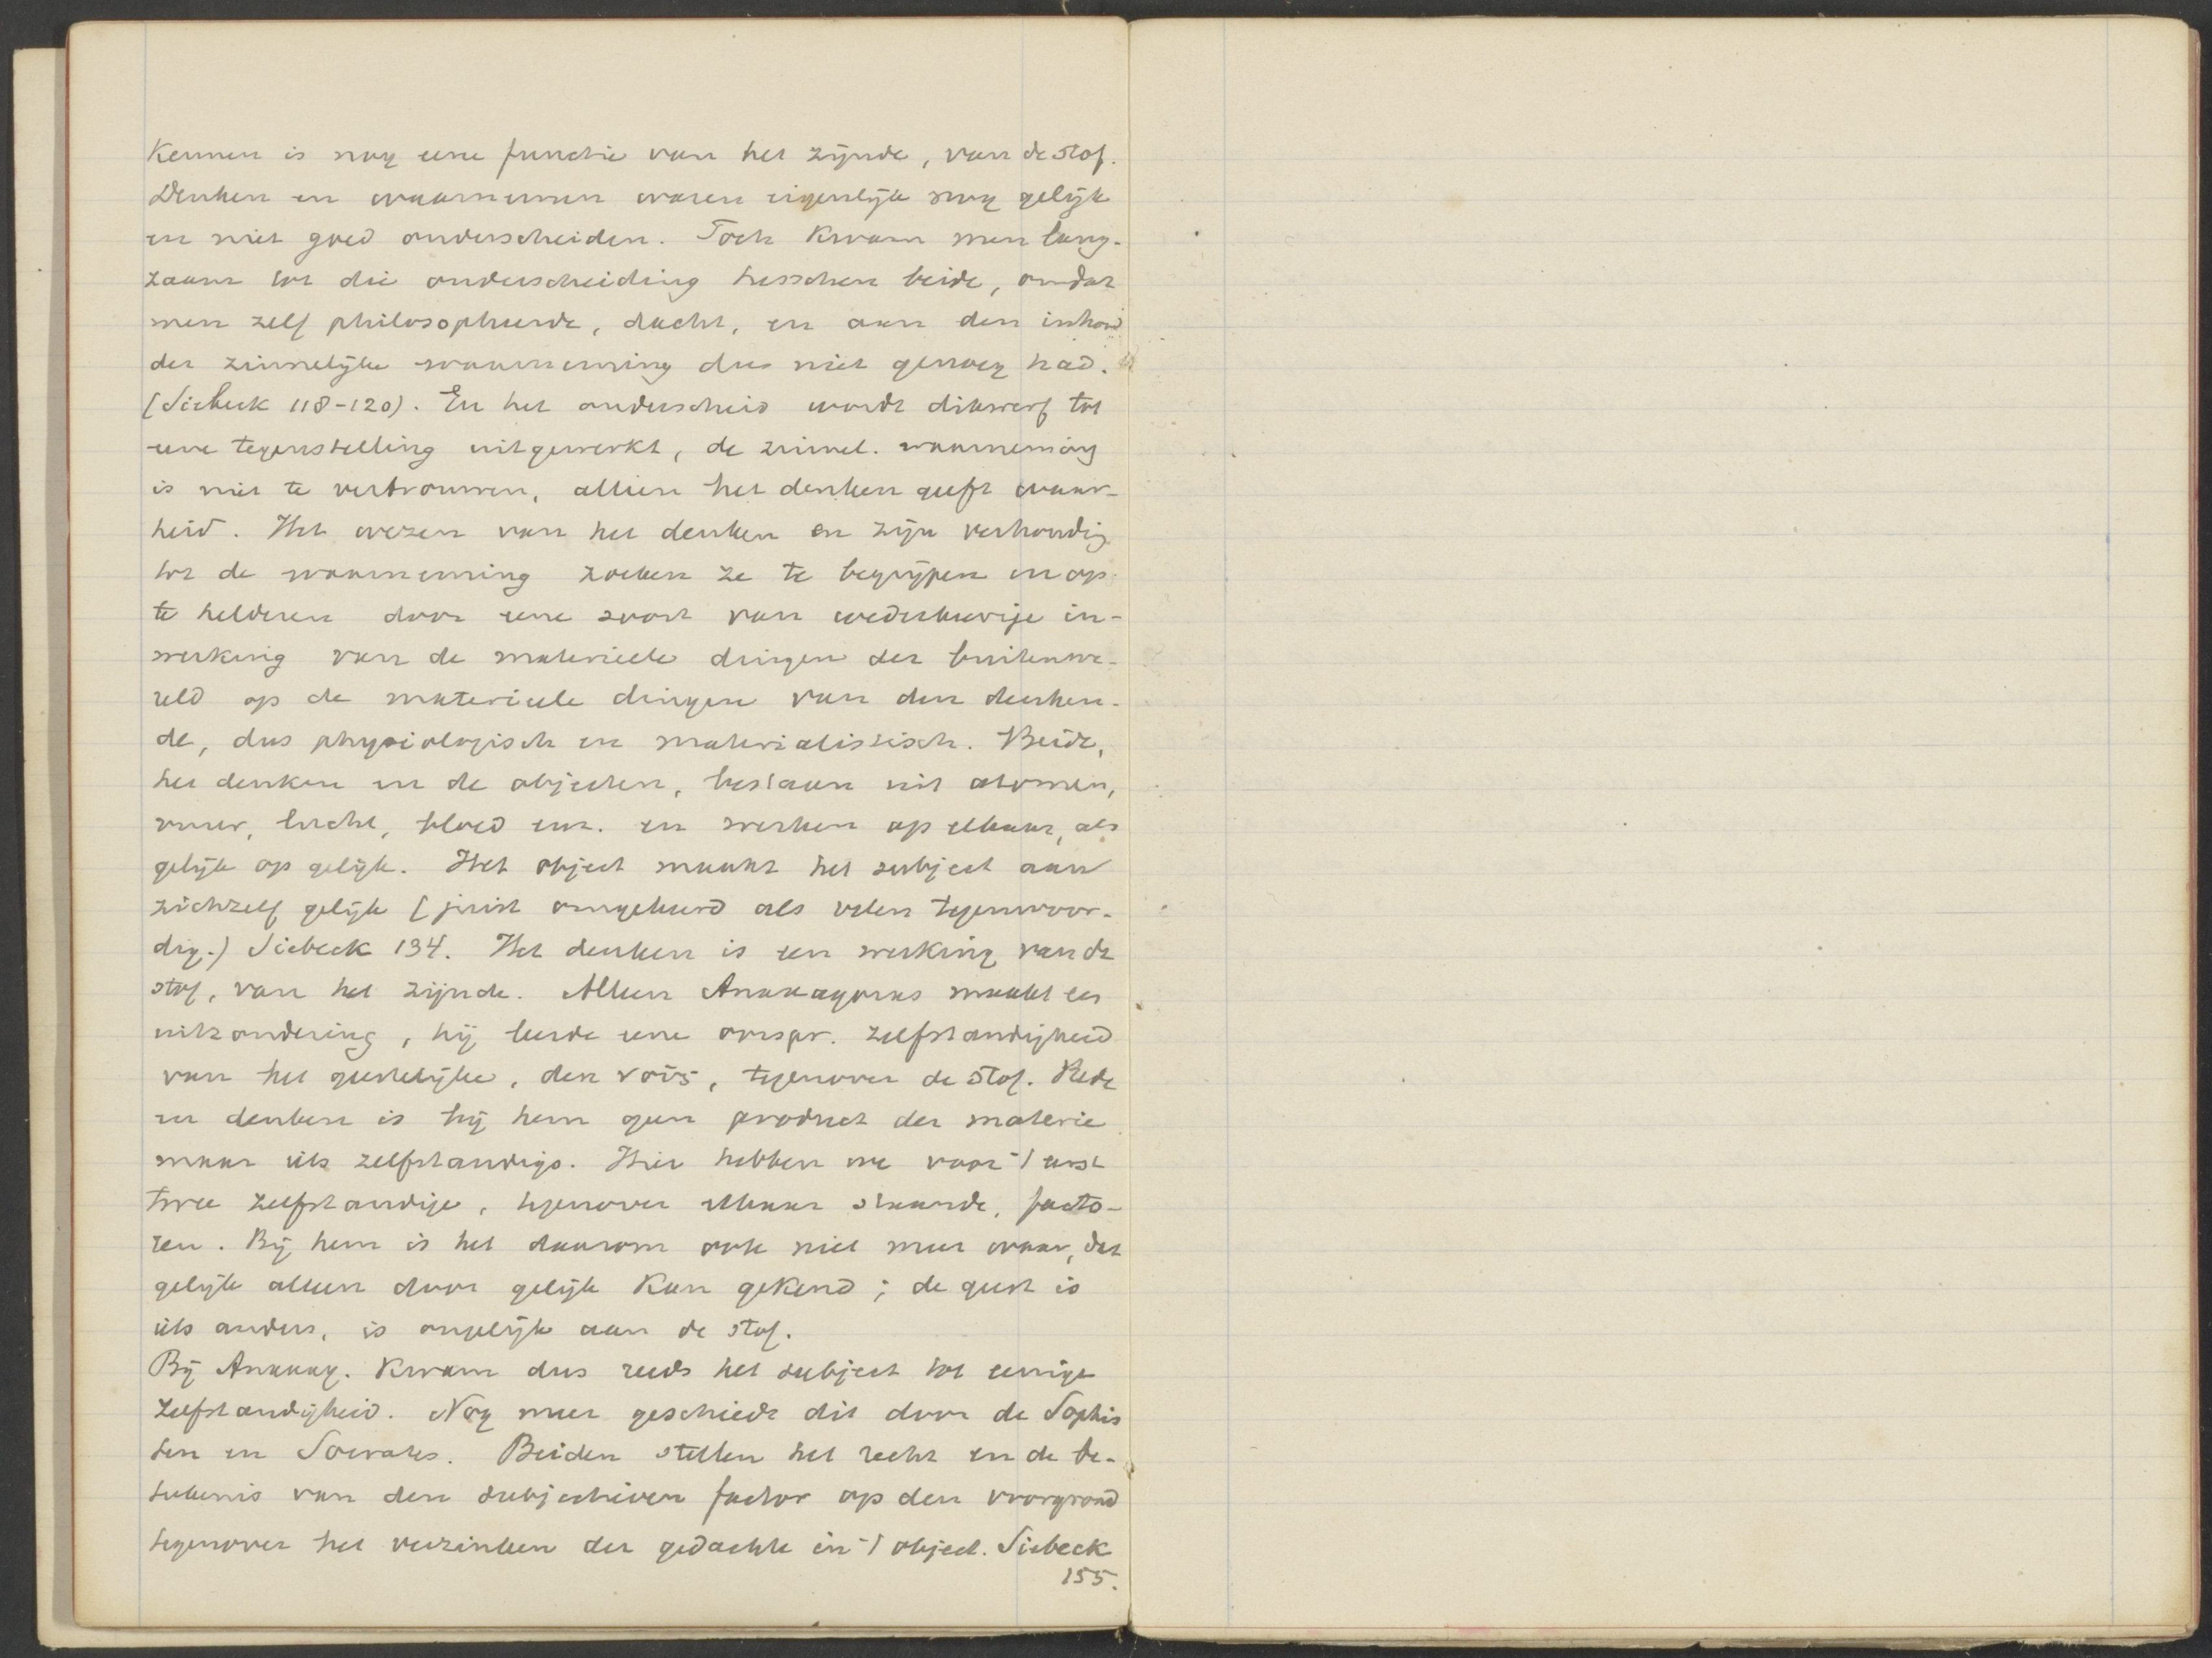 Kennen is nog eene functie van het zijnde, van de stof.
Denken en waarnemen waren eigenlijk nog gelijk
en niet goed onderscheiden. Toch kwam men lang-
zaam tot die onderscheiding tusschen beide, omdat
men zelf philosopheerde, dacht, en aan den inhoud
der zinnelijke waarneming dus niet genoeg had.
(Siebeck 118-120). En het onderscheid wordt dikwerf tot
eene tegenstelling uitgewerkt, de zinnel. waarneming
is niet te vertrouwen, alleen het denken geeft waar-
heid. Het wezen van het denken en zijn verhoudig
tot de waarneming zoeken ze te begrijpen en op
te helderen door eene soort van wederkeerige in-
werking van de materieele dingen der buitenwe-
reld op de materieele dingen van den denken-
de, dus physiologisch en materialistisch. Beide,
het denken en de objecten, bestaan uit atomen,
vuur, lucht, bloed enz. en werken op elkaar, als
gelijk op gelijk. Het object maakt het subject aan
zichzelf gelijk (juist omgekeerd als velen tegenwoor-
dig.) Siebeck 134. Het denken is een werking van de
stof, van het zijnde. Alleen Anaxagoras maakt een
uitzondering, hij leerde eene oorspr. zelfstandigheid
van het geestelijke, den νοῦς, tegenover de stof. Rede
en denken is bij hem geen product der materie
maar iets zelfstandigs. Hier hebben we voor 't eerst
twee zelfstandige, tegenover elkaar staande, facto-
ren. Bij hem is het daarom ook niet meer waar, dat
gelijk alleen door gelijk kan gekend; de geest is
iets anders, is ongelijk aan de stof.
Bij Anaxag. kwam dus reeds het subject tot eenige
zelfstandigheid. Nog meer geschiedt dit door de Sophis
ten en Socrates. Beiden stellen het recht en de be-
teekenis van den subjectieven factor op den voorgrond
tegenover het verzinken der gedachte in 't object. Siebeck
155.